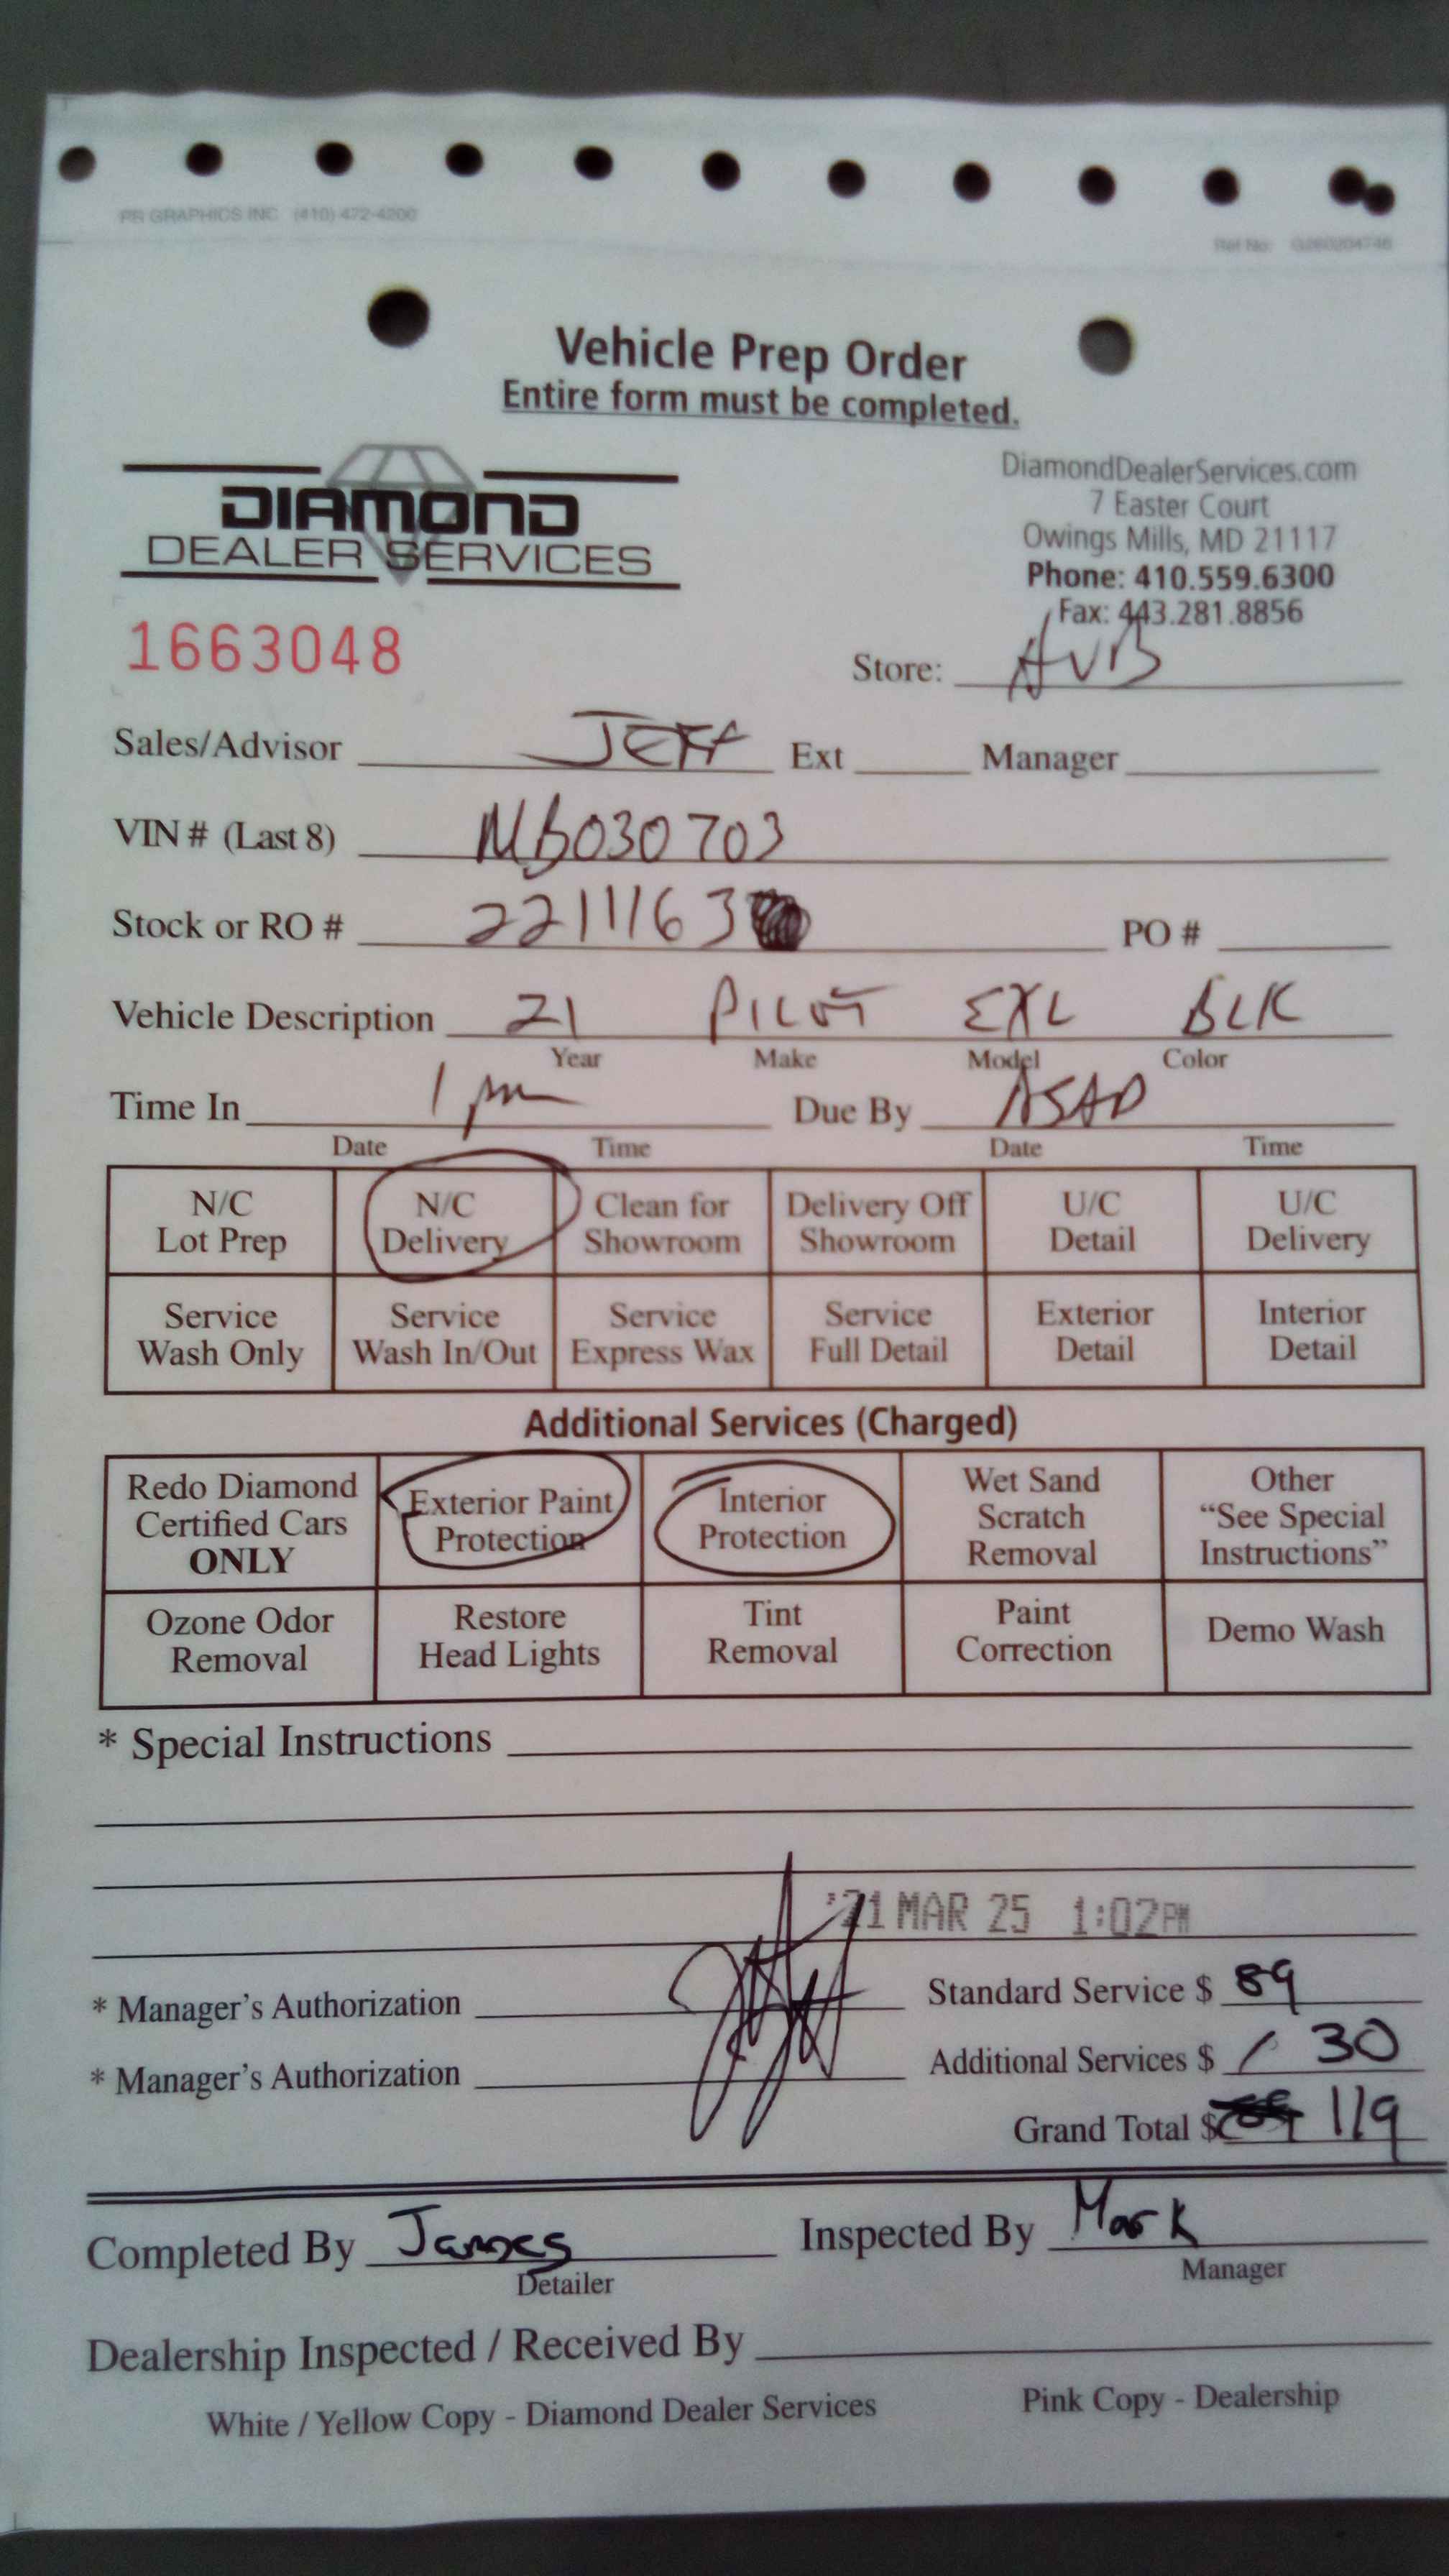 PR GRAPHICS INC (410) 472-4200
Ref No: G260204746
Vehicle Prep Order
Entire form must be completed.
DIAMOND
DEALER SERVICES
DiamondDealerServices.com
7 Easter Court
Owings Mills, MD 21117
Phone: 410.559.6300
Fax: 443.281.8856
1663048
Store: AVB
Sales/Advisor JEFF Ext Manager
VIN # (Last 8) MB030703
Stock or RO # 22111163 PO #
Vehicle Description 21 PILOT EXL BLK
Year Make Model Color
Time In 1 pm Due By ASAP
Date Time Date Time
N/C Lot Prep
N/C Delivery
Clean for Showroom
Delivery Off Showroom
U/C Detail
U/C Delivery
Service Wash Only
Service Wash In/Out
Service Express Wax
Service Full Detail
Exterior Detail
Interior Detail
Additional Services (Charged)
Redo Diamond Certified Cars ONLY
Exterior Paint Protection
Interior Protection
Wet Sand Scratch Removal
Other "See Special Instructions"
Ozone Odor Removal
Restore Head Lights
Tint Removal
Paint Correction
Demo Wash
* Special Instructions
'21 MAR 25 1:02PM
* Manager's Authorization Standard Service $ 89
* Manager's Authorization Additional Services $ 30
Grand Total $ 119
Completed By James Inspected By Mark
Detailer Manager
Dealership Inspected / Received By
White / Yellow Copy - Diamond Dealer Services Pink Copy - Dealership